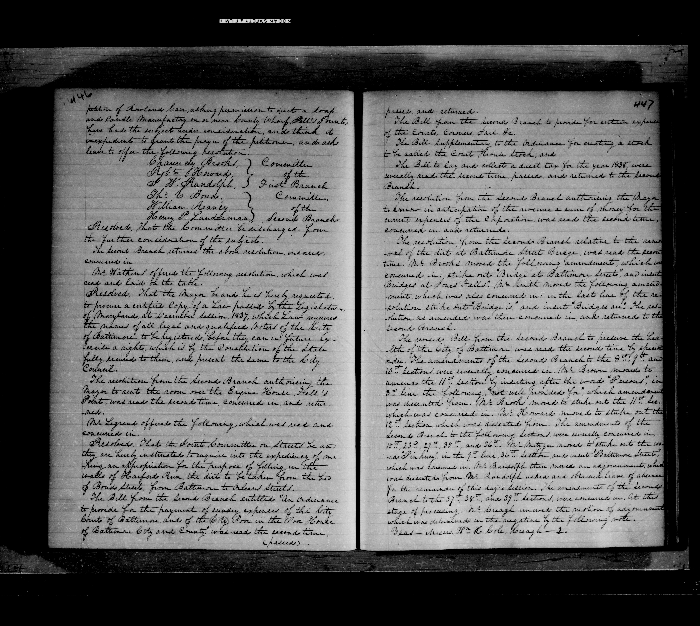 446
petition of Rowland Carr, asking permission to erect a Soap
and Candle Manufactory on or near County Wharf, Fell's Point,
have had the subject under consideration, and think it
inexpedient to grant the prayer of the petitioner, and ask
leave to offer the following resolution.
Committee
Robt Howard, of the
J. W. Randolph, First Branch
Thos. C. Bond, Committee
William Reaney of the
Henry P. Second Branch
Resolved, That the Committee be discharged from
the further consideration of the subject.
The Second Branch returned the above resolution, endorsed,
concurred in.
Mr. Watkins offered the following resolution, which was
read and laid on the table.
Resolved, That the Mayor be and he is hereby requested
to procure a certified Copy of a law passed by the Legislature
of Maryland, at December Session 1837, which law requires
the names of all legal and qualified Voters of the City
of Baltimore to be registered before they can in future ex-
ercise a right, which is by the Constitution of the State
fully denied to them, and present the same to the City
Council.
The resolution from the Second Branch authorising the
Mayor to rent the room over the Engine House, Fell's
Point, was read the second time, concurred in, and retur
ned.
Mr. Legrand offered the following, which was read and
concurred in.
Resolved, That the Joint Committee on Streets be and
they are hereby instructed to enquire into the expediency of ma
king an appropriation for the purpose of filling in the
walls of Harford Run, the dirt to be taken from the bed
of Bonds Street, from Baltimore to Orleans Streets.
The Bill from the Second Branch entitled "An Ordinance
to provide for the payment of sundry expenses of the City
Court of Baltimore and of the City Poor in the Poor House
of Baltimore City and County, was read the second time,
(passed)
447
passed, and returned.
The Bill from the Second Branch to provide for certain expenses
of the Courts, Coroners Jail &c.
The Bill Supplementary to the Ordinance for erecting a clock
to be called the Court House clock, and
The Bill to levy and collect a direct tax for the year 1838, were
severally read the second time, passed and returned to the Second
Branch.
The resolution from the Second Branch authorising the Mayor
to borrow in anticipation of the revenue a sum of money for the
current expenses of the Corporation was read the second time,
concurred in and returned.
The resolution from the Second Branch relative to the remo
val of the dirt at Baltimore Street Bridge, was read the second
time. Mr. Brooks moved the following amendment which was
concurred in, strike out "Bridge at Baltimore Street" and insert
"Bridges at Jones Falls". Mr. Smith moved the following amend-
ment which was also concurred in in the last line of the re-
solution strike out "Bridge is" and insert "Bridges are". The res-
olution as amended was then concurred in and returned to the
Second Branch.
The remedy Bill from the Second Branch to preserve the hea-
lth of the City of Baltimore was read the second time by special
order. The amendments of the Second Branch to the
10th sections were severally concurred in. Mr. Brown moved to
amend the 11th section by inserting after the word "Persons", in
3rd line the following, "not well provided for", which amendment
was dissented from. Mr. Brooks moved to strike out the 11th Sec.
which was concurred in. Mr. Howard moved to strike out the
12th section which was dissented from. The amendments of the
Second Branch to the following sections were severally concurred in
which was concurred in. Mr. Randolph then moved an adjournment, which
was dissented from. Mr. Randolph asked and obtained leave of absence
for the remainder of this days session. The amendments of the Second
Branch to the 37th 38th and 39th sections, were concurred in. At this
stage of proceeding Mr. Creagh renewed the motion of adjournment
which was determined in the negative by the following vote.
Yeas — Messrs. Wm. H. Cole, Creagh — 2.